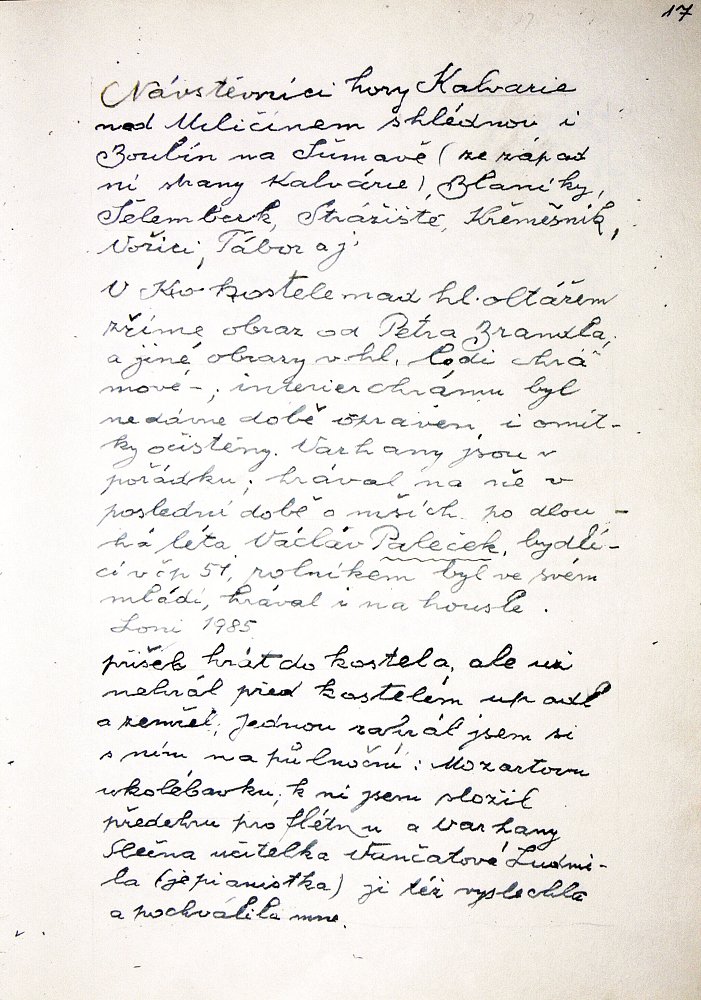 17
Návstěvníci hory Kalvarie
nad Miličínem shlédnou i
Boubín na Šůmavě (ze západ
ní strany Kalvárie), Blaníky,
Šelemberk, Strážiště, Křěměšník,
Vořici, Tábor aj.
V kostele nad hl. oltářem
zříme obraz od Petra Brandla,
a jiné obrazy v hl. lodi chrá
mové -; interier chrámu byl
nedávne době opraven i omít-
ky očištěny. Varhany jsou v
pořádku; hrával na ně v
poslední době o mších po dlou-
há léta Václav Paleček, bydlí-
cí v čp 51, rolníkem byl ve svém
mládí, hrával i na housle.
Loni 1985
přišek hrát do kostela, ale už
nehrál před kostelém upadl
a zemřel; jednou zahrál jsem si
s ním na půlnoční: Mozartovu
ukolébavku, k ní jsem složil
předehru pro flétnu a varhany
Slečna učitelka Vančatové Ludmi-
la (je pianistka) ji též vyslechla
a pochválila mne.